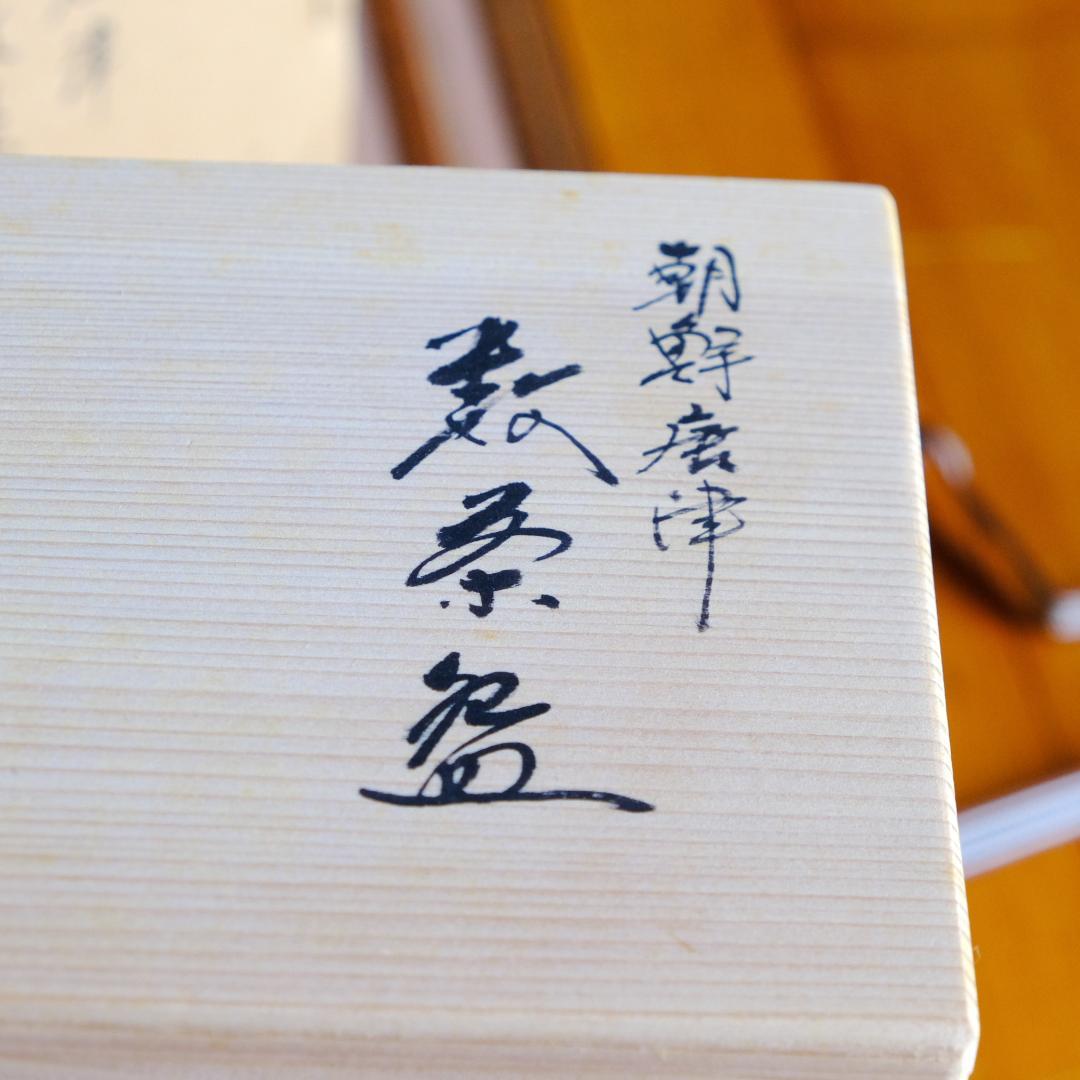 朝鮮唐津
数茶盌